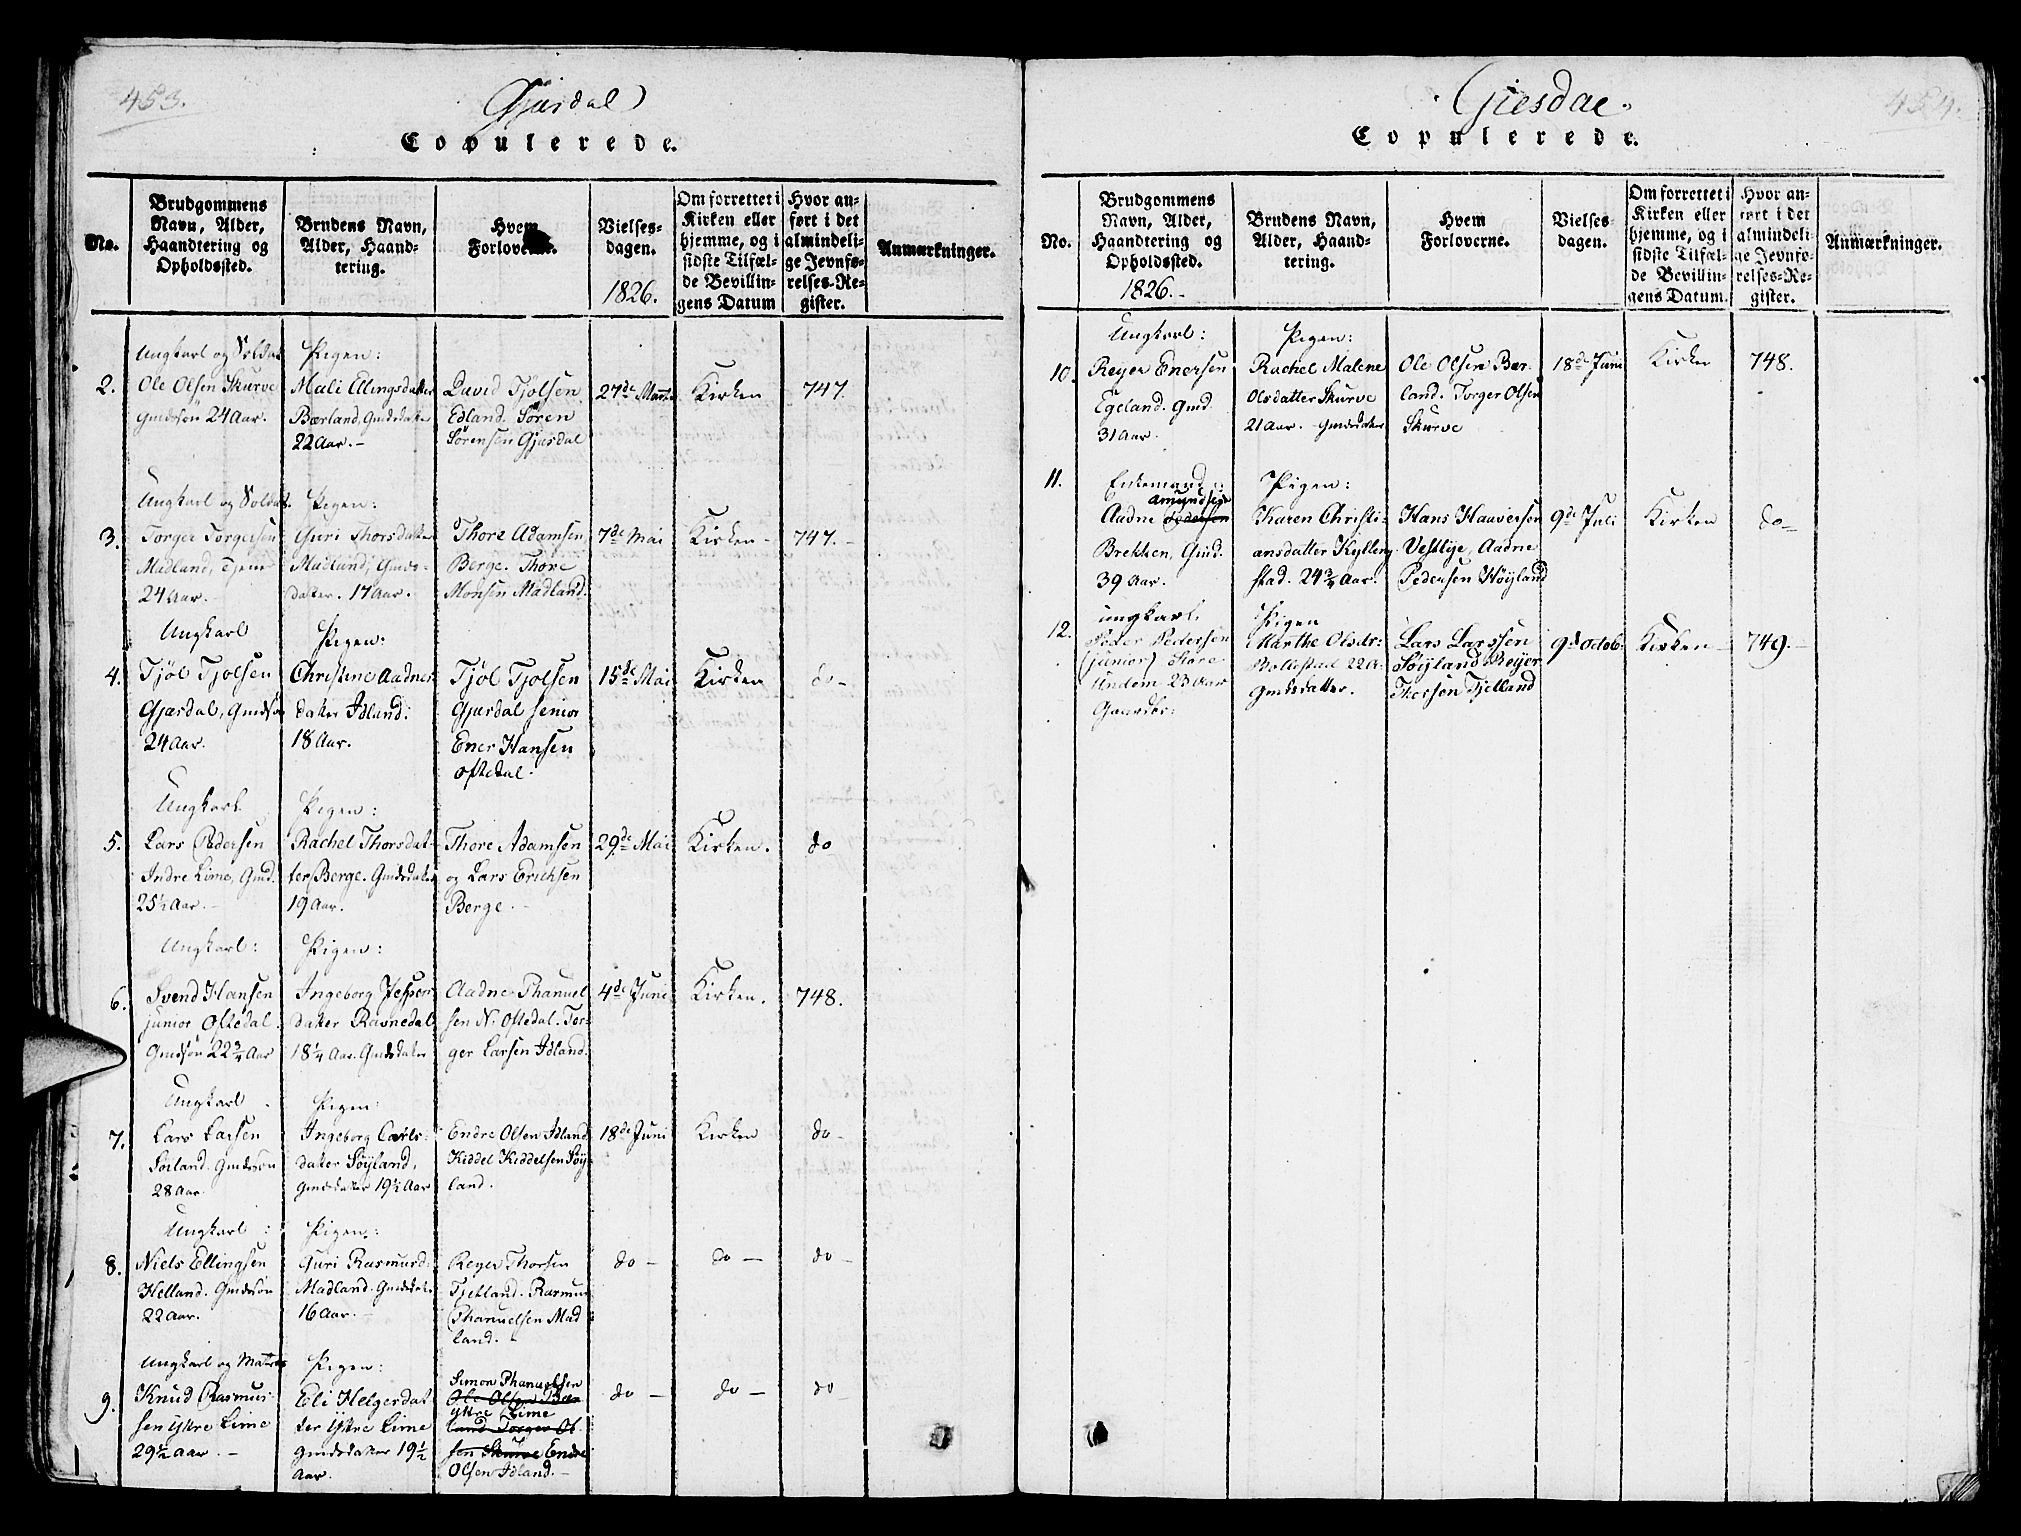 453.
Gjæsdal
Copulerede.
No.
Brudgommens
Navn, Alder,
Haandtering og
Opholdssted.
Brudens Navn,
Alder, Haand-
tering.
Hvem
Forloverne.
Vielses-
dagen.
1826.
Om forrettet i
Kirken eller
hjemme, og i
sidste Tilfæl-
de Bevillin-
gens Datum
Hvor an-
ført i det
almindeli-
ge Jevnfø-
relses-Re-
gister.
Anmærkninger.
2.
Ungkarl og Soldat
Ole Olsen Skurve
Gmdssøn 24 Aar.
Pigen:
Mali Ellingsdatter
Bærland, Gmdsdatter
22 Aar. -
David Tjølsen
Edland. Sören
Sörensen Gjæsdal
27de Marts
Kirken
747.
3.
Ungkarl og Soldat.
Torger Torgersen
Madland, Tjener
24 Aar. -
Pigen:
Guri Thorsdatter
Madland, Gmds-
datter. 17 Aar.
Thore Adamsen,
Berge. Thore
Monsen Madland.
7de Mai
Kirken -
747. -
4.
Ungkarl
Tjöl Tjolsen
Gjæsdal, Gmdssøn
24 Aar.
Pigen:
Christine Aadnes-
datter Idland.
18 Aar.
Tjöl Tjolsen
Gjæsdal senior
Ener Hansen
Oftedal.
15de Mai
Kirken
do -
5.
Ungkarl
Lars Pedersen
Indre Lime, Gmd.
25½ Aar. -
Pigen:
Rachel Thorsdat-
ter Berge. Gmdsdatter
19 Aar.
Thore Adamsen
og Lars Erichsen
Berge. -
29de Mai
Kirken.
do
6.
Ungkarl:
Svend Hansen
junior Oftedal.
Gmdssøn 22¾ Aar
Pigen:
Ingeborg Jesper-
datter Ravnedal
18¼ Aar. Gmdsdatter
Aadne Phanuel
sen N. Oftedal. Tor-
ger Larsen Idland.
4de Juni
Kirken.
748.
7.
Ungkarl
Lars Larsen
Sørland. Gmdssøn
28 Aar.
Pigen:
Ingeborg Carls-
datter Söyland,
Gmdsdatter 19½ Aar
Endre Olsen Idland
Kiddel Kiddelsen Söy-
land.
18de Juni
Kirken
do -
8.
Ungkarl:
Niels Ellingsen
Helland. Gmdssøn
22 Aar.
Pigen:
Guri Rasmusd:
Madland. Gmdsdatter
16 Aar. -
Reyer Thorsen
Tjelland. Rasmus
Phanuelsen Mad
land. -
do -
do -
do -
9.
Ungkarl og Matros
Knud Rasmus-
sen Ytre Lime
29½ Aar. -
Pigen:
Eli Helgesdat-
ter Ytre Lime
Gmdsdatter 19½
Aar.
Simon Phanuelsen
Ole Olsen Bær
Ytre Lime
land Torger Ol-
sen Skurve Endre
Olsen Idland. -
do -
do -
do -
454.
Giesdal.
Copulerede.
No.
Brudgommens
Navn, Alder,
Haandtering og
Opholdssted.
1826. -
Brudens Navn,
Alder, Haand-
tering.
Hvem
Forloverne.
Vielses-
dagen.
Om forrettet i
Kirken eller
hjemme, og i
sidste Tilfæl-
de Bevillin-
gens Datum.
Hvor an-
ført i det
almindeli-
ge Jevnfø-
relses-Re-
gister.
Anmærkninger.
10.
Ungkarl:
Reyer Enersen
Egeland. Gmd.
31 Aar.
Pigen:
Rachel Malene
Olsdatter Skurve
21 Aar. Gmdsdatter
Ole Olsen Bær-
land. Torger Olsen
Skurve
18de Juni
Kirken
748.
11.
Enkemand:
Amundsen
Aadne Pedersen
Brekken, Gmd.
39 Aar.
Pigen:
Karen Christi-
ansdatter Kylling-
stad. 24¾ Aar.
Hans Haaversen
Vestlye, Aadne
Pedersen Höyland
9de Juli
Kirken
do -
12.
ungkarl,
Peder Pedersen
(junior) Store
Undem 23 Aar
Gaardbr:
Pigen
Marthe Olsdr:
Bollestad 22 A.
Gmdsdatter.
Lars Larssen
Søiland Reyer
Thorsøn Tjelland
9d Octob:
Kirken -
749. -